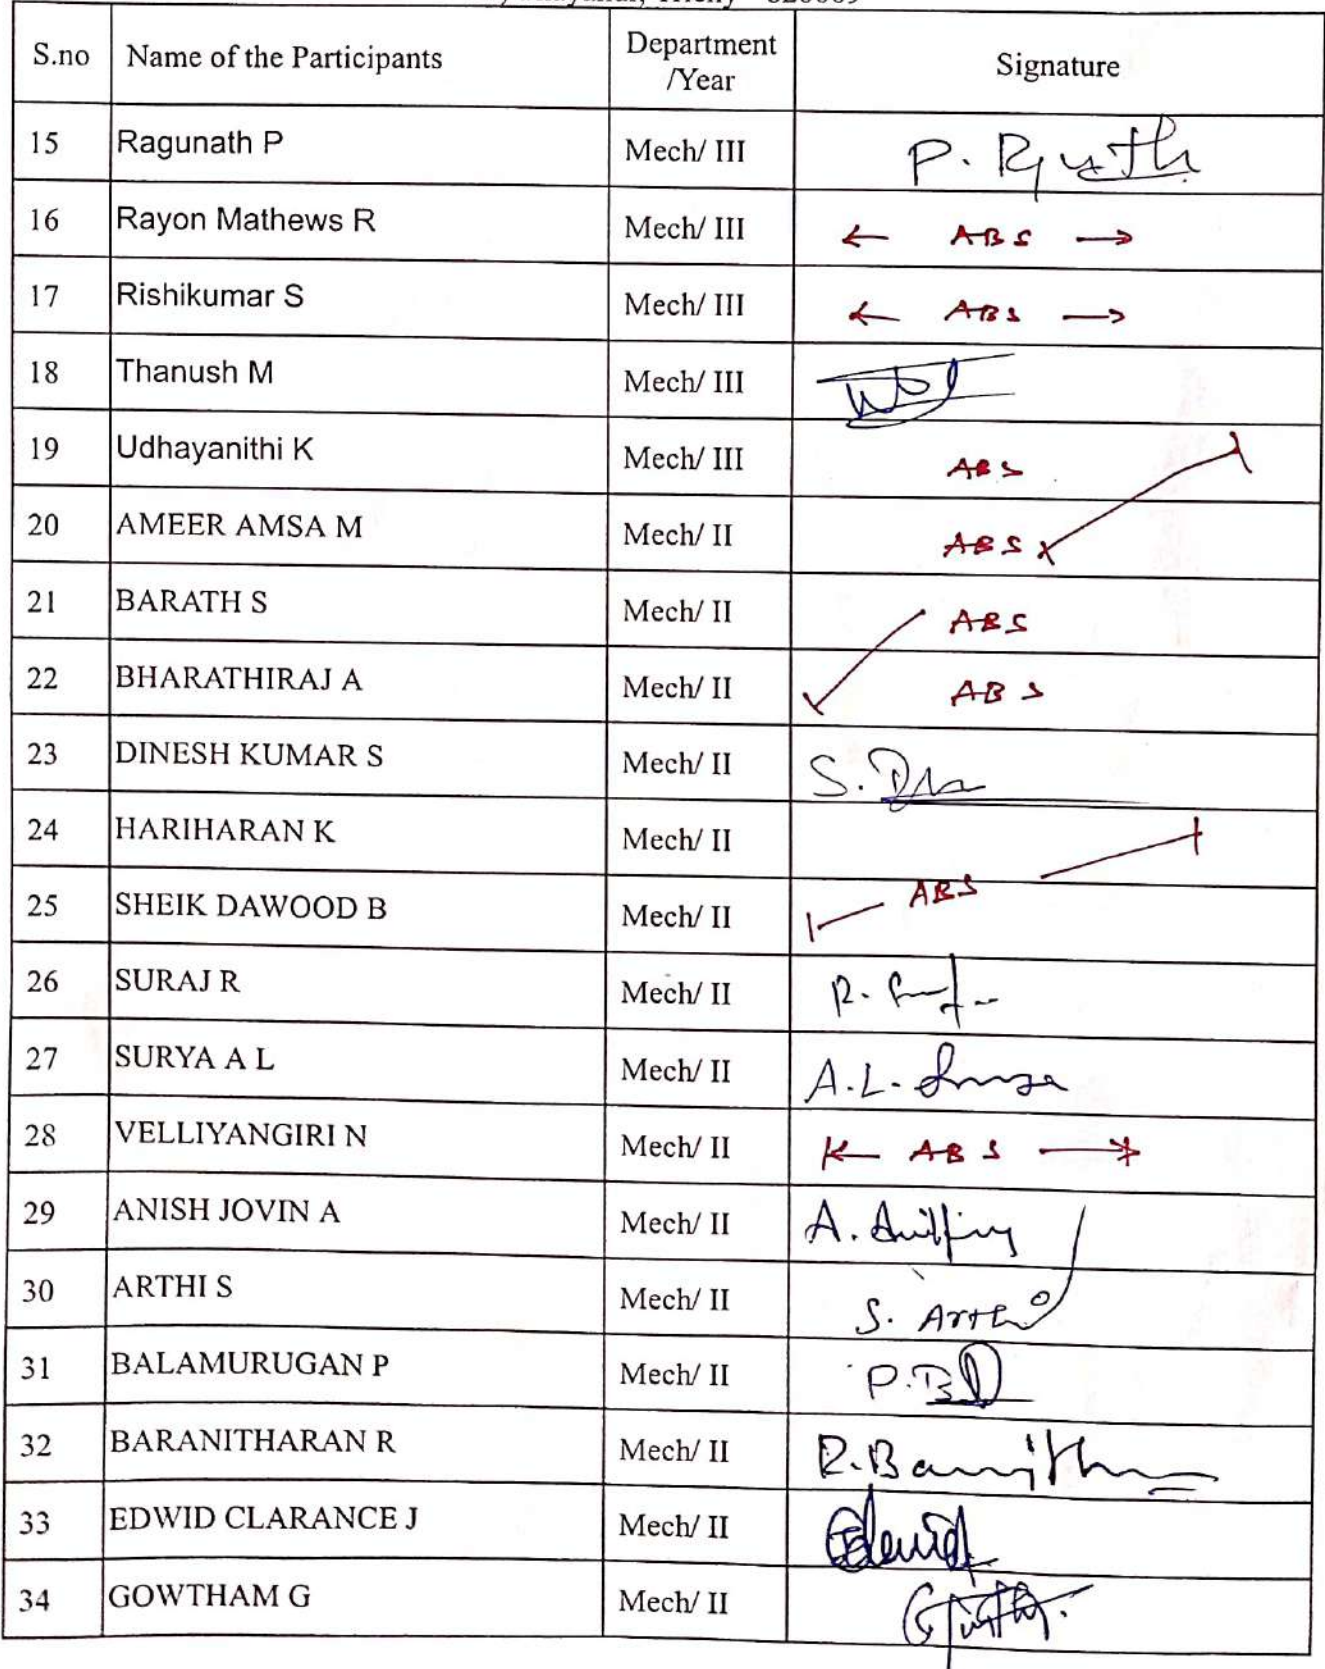 S.no Name of the Participants Department /Year Signature
15 Ragunath P Mech/ III
16 Rayon Mathews R Mech/ III ← ABS →
17 Rishikumar S Mech/ III ← ABS →
18 Thanush M Mech/ III
19 Udhayanithi K Mech/ III ABS
20 AMEER AMSA M Mech/ II ABS
21 BARATH S Mech/ II ABS
22 BHARATHIRAJ A Mech/ II ABS
23 DINESH KUMAR S Mech/ II
24 HARIHARAN K Mech/ II
ABS
25 SHEIK DAWOOD B Mech/ II
26 SURAJ R Mech/ II
27 SURYA A L Mech/ II A.L.
28 VELLIYANGIRI N Mech/ II ← ABS →
29 ANISH JOVIN A Mech/ II
30 ARTHI S Mech/ II S. Arthi
31 BALAMURUGAN P Mech/ II
32 BARANITHARAN R Mech/ II
33 EDWID CLARANCE J Mech/ II
34 GOWTHAM G Mech/ II